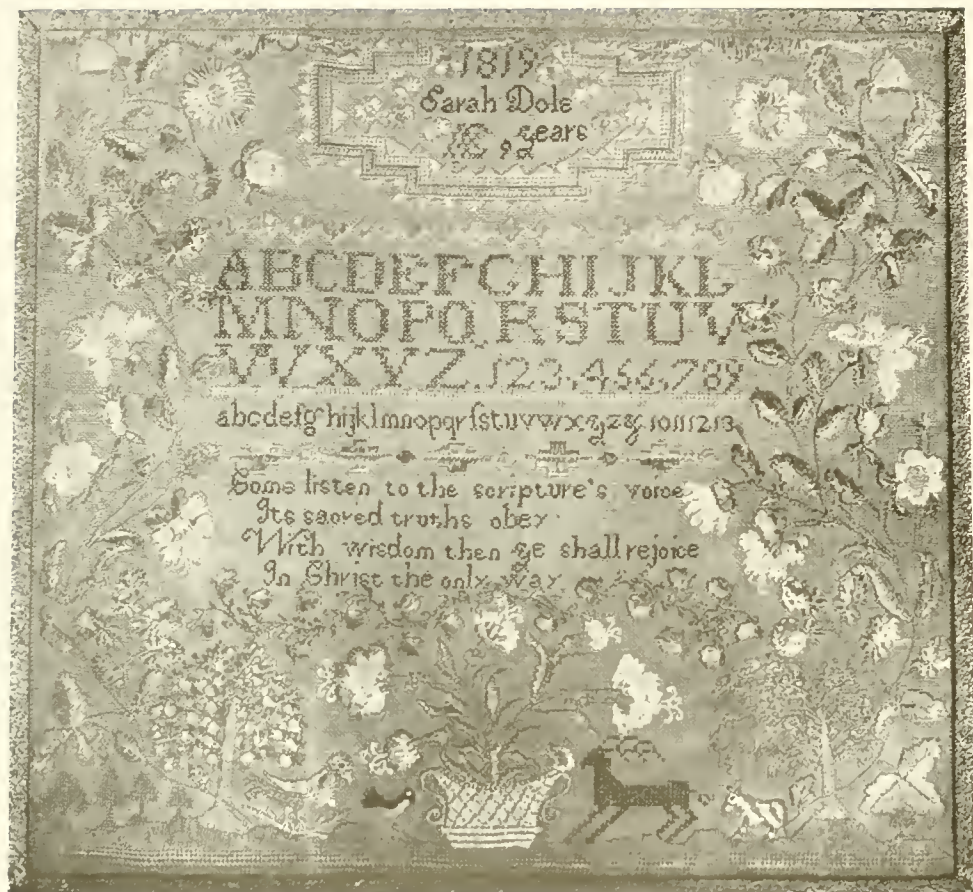 1819
Sarah Dole
Æ 9 years
ABCDEFGHIJKL
MNOPQRSTUV
WXYZ.123.456.789
abcdefghijklmnopqrſstuvwxyz&.10111213
Some listen to the scripture's voice
Its sacred truths obey
With wisdom then ye shall rejoice
In Christ the only way